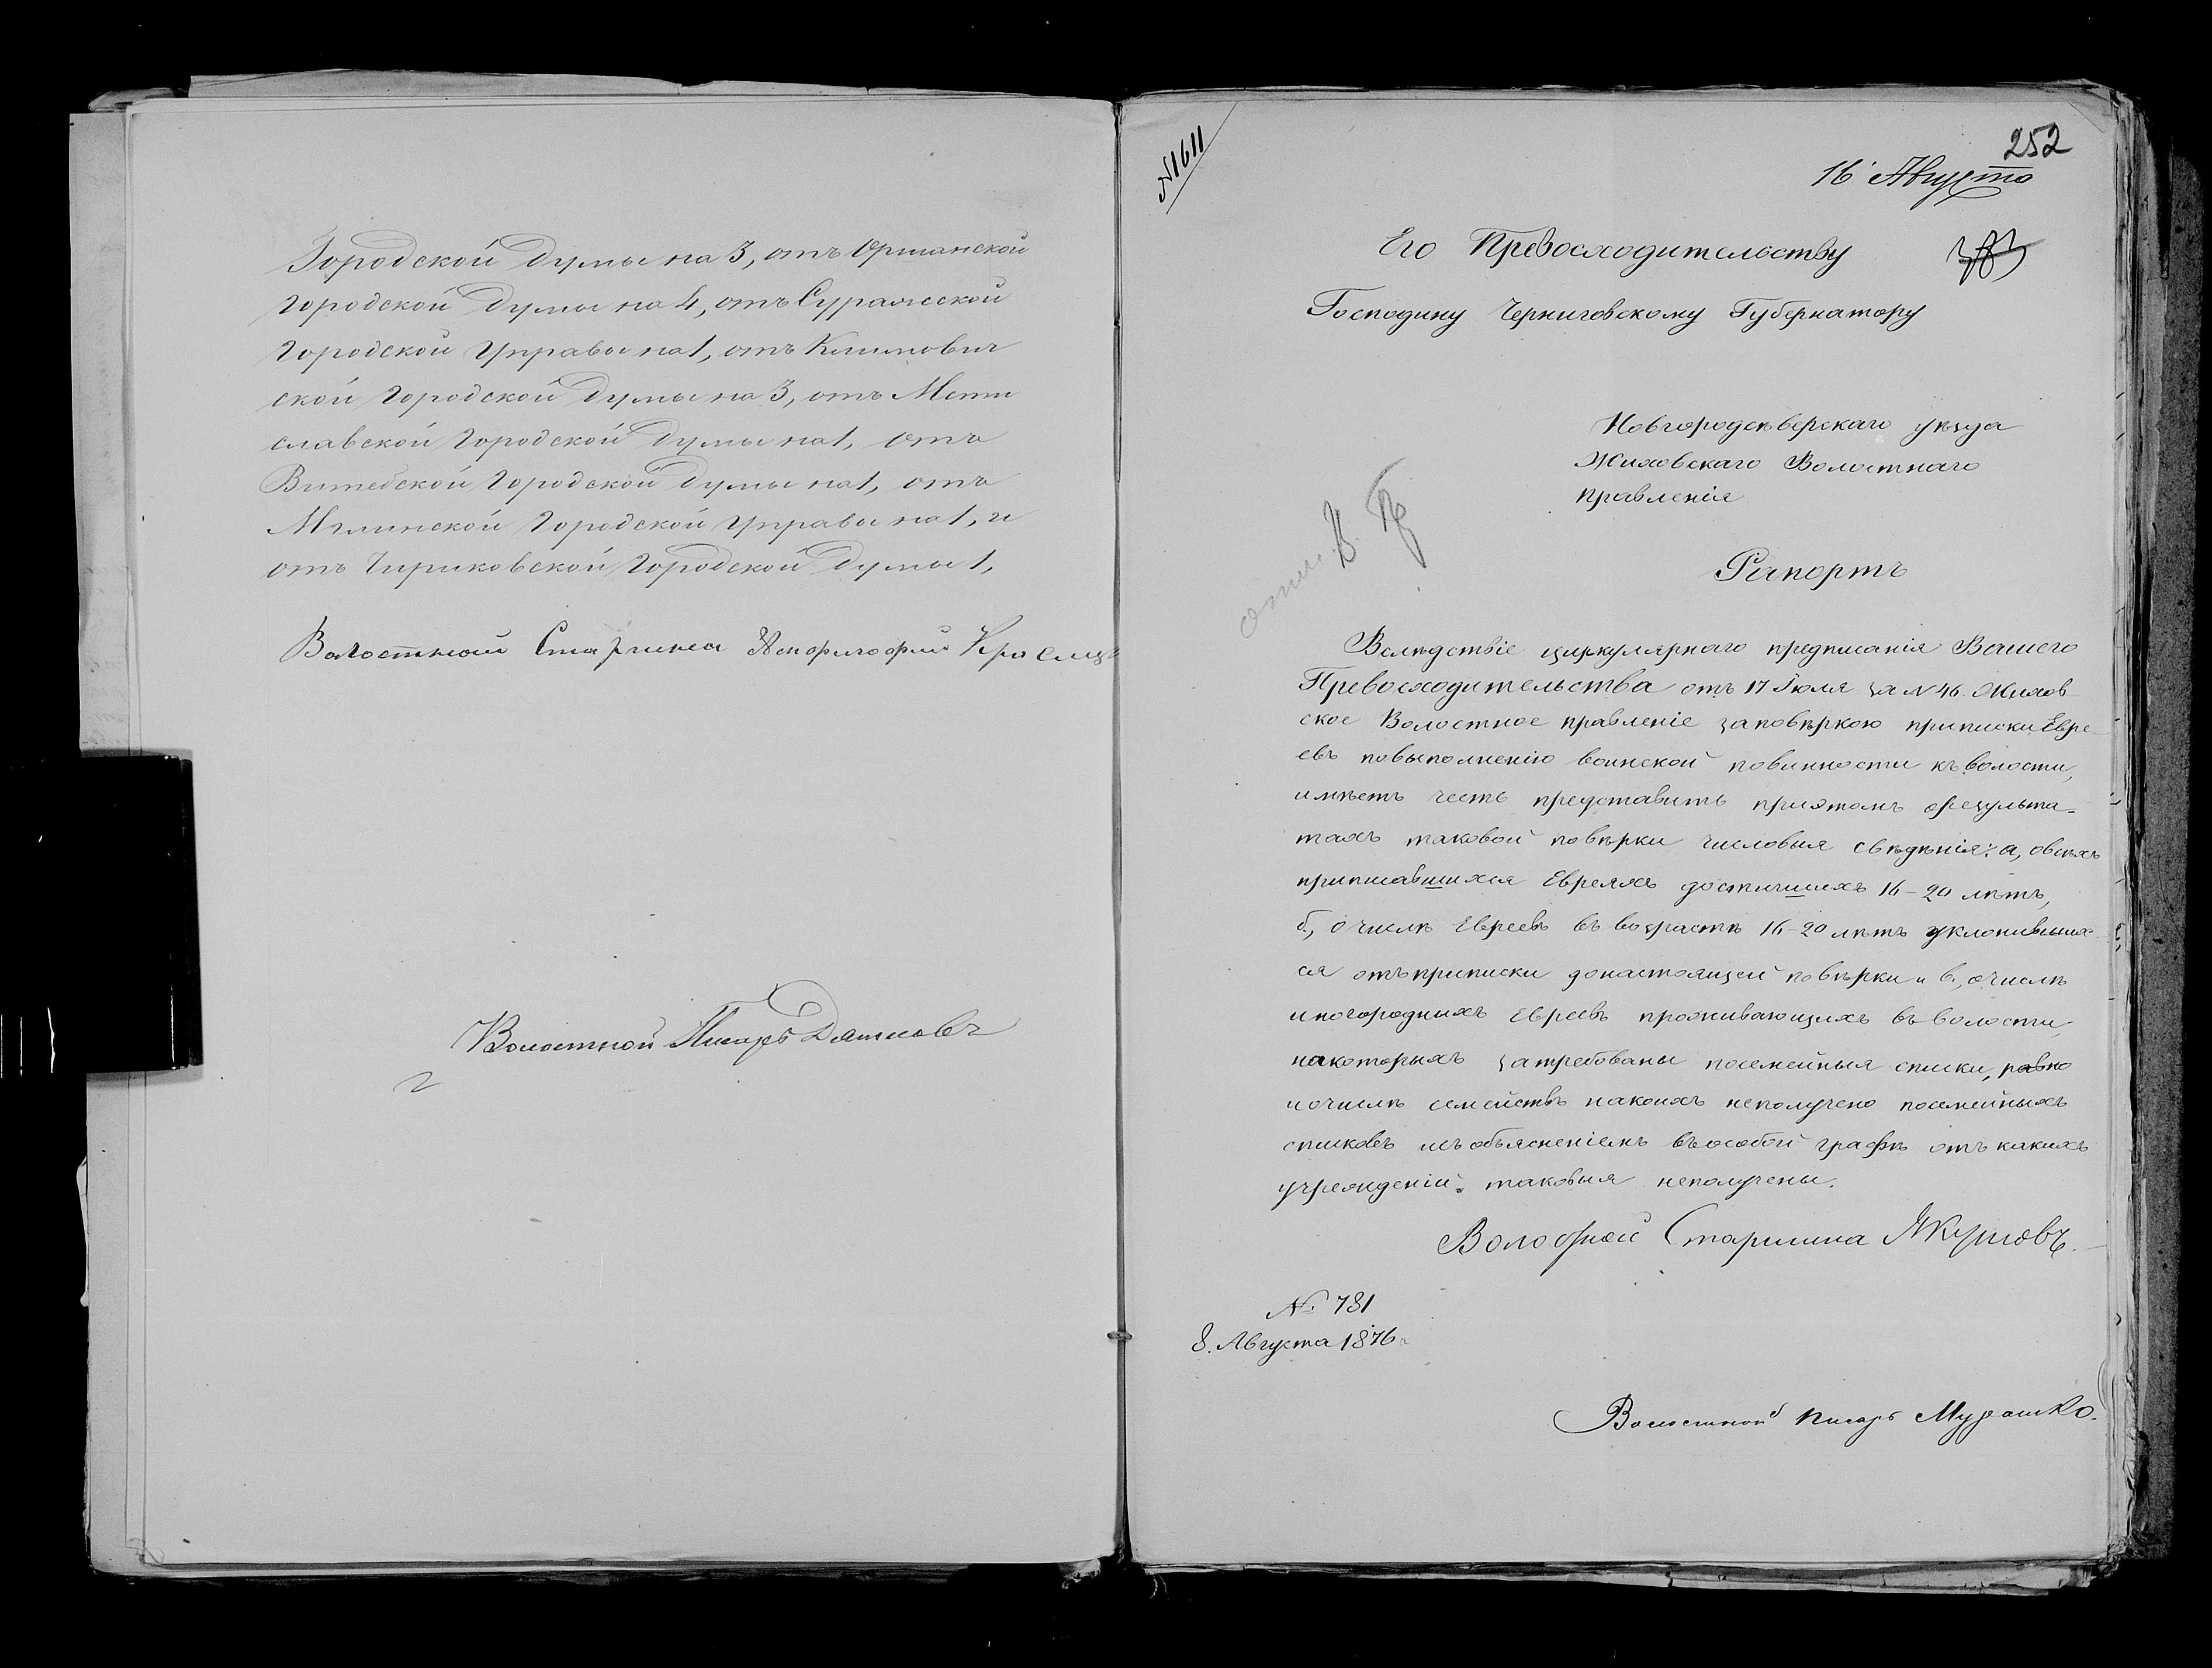 Городской Думы на 3, отъ Оршанской
городской Думы на 4, отъ Суражской
городской Управы на 1, отъ Климович
ской городской Думы на 3, отъ Мсти
славской городской Думы на 1, отъ
Витебской городской Думы на 1, отъ
Мглинской городской Управы на 1, и
отъ Чириковской городской Думы 1,
Волостной Старшина
Волостной Писарь
№ 1611
252
16 Августа
Его Превосходительству
Господину Черниговскому Губернатору
Новгородсѣверскаго уѣзда
Жиховскаго Волостнаго
правленія
Рапортъ
Вслѣдствіе циркулярнаго предписанія Вашего
Превосходительства отъ 17 Іюля за № 46. Жихов
ское Волостное правленіе за повѣркою приписки Евре
евъ по выполненію воинской повинности къ волости,
имѣетъ честь представить при этомъ о результа-
тахъ таковой повѣрки числовыя свѣдѣнія: а, о всѣхъ
приписавшихся Евреяхъ достигшихъ 16-20 лѣтъ,
б, о числѣ Евреевъ въ возрастѣ 16-20 лѣтъ уклонивших
ся отъ приписки до настоящей повѣрки и в, о числѣ
иногородныхъ Евреевъ проживающихъ въ волости,
на которыхъ затребованы посемейныя списки, равно
и о числѣ семействъ на коихъ неполучено посемейныхъ
списковъ съ объясненіемъ въ особой графѣ отъ какихъ
учрежденій таковыя неполучены.
Волостной Старшина Якушовъ.
№ 781
8. Августа 1876 г
Волостной писарь Мурашко.